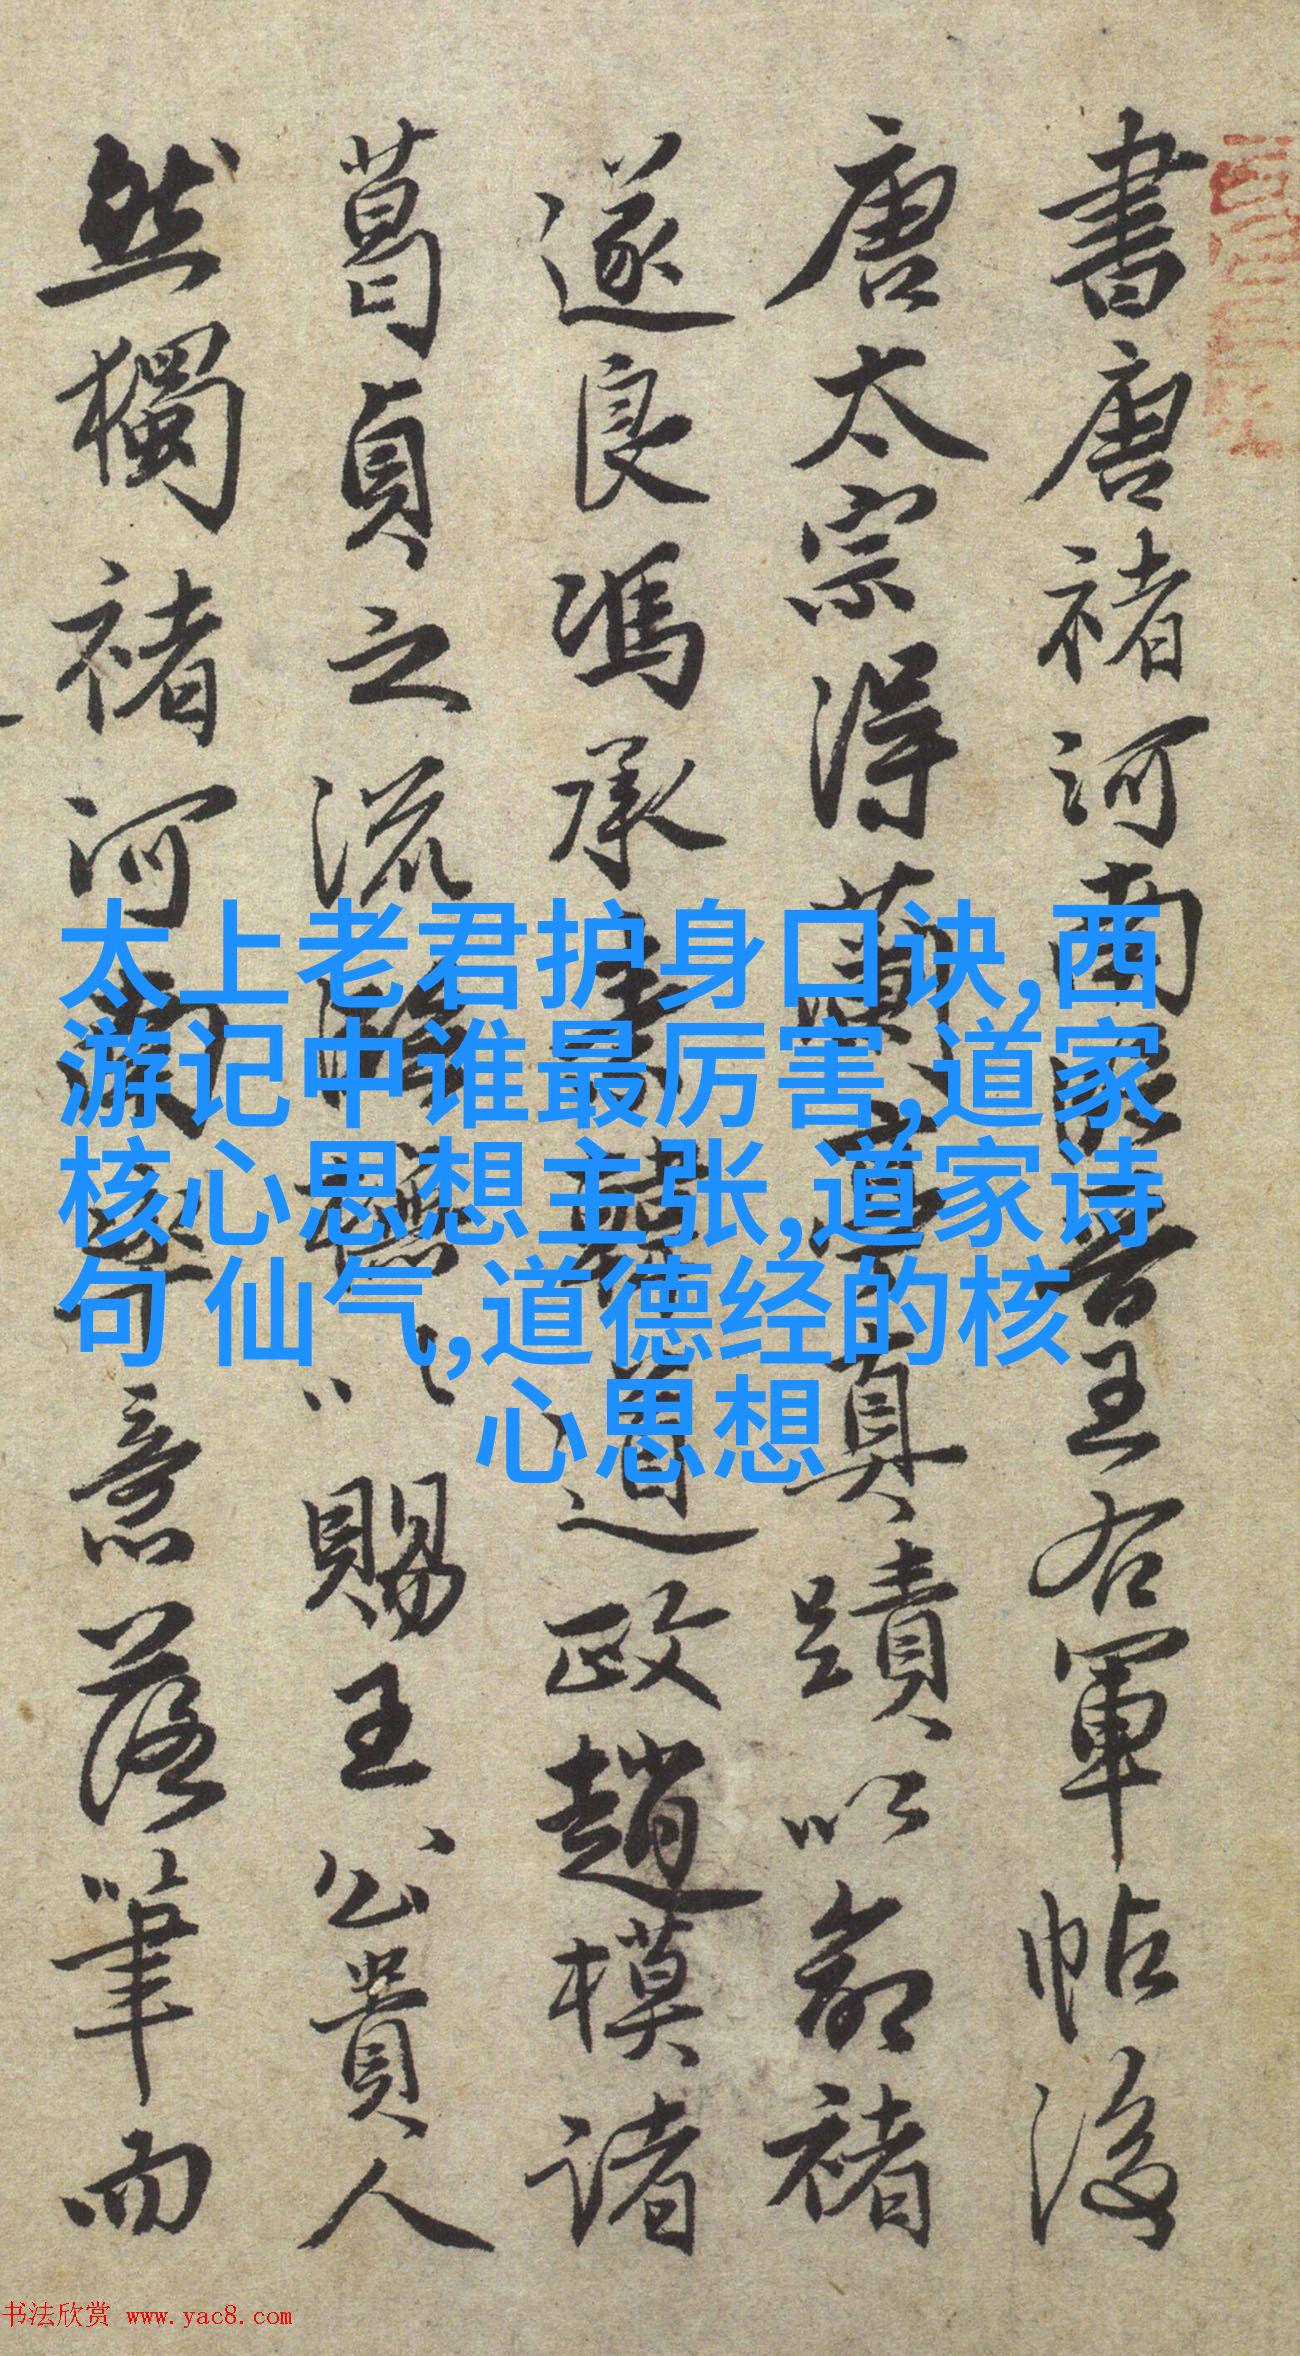 書唐褚河南晉王右軍帖後
唐太宗得蘭亭真蹟以命褚
遂良馮承素韓道政趙模諸
葛貞之流以賜王公貴人
然獨褚河南意落筆而
太上老君护身口诀,西
游记中谁最厉害,道家
核心思想主张,道家诗
句 仙气,道德经的核
心思想
书法欣赏 www.yac8.com